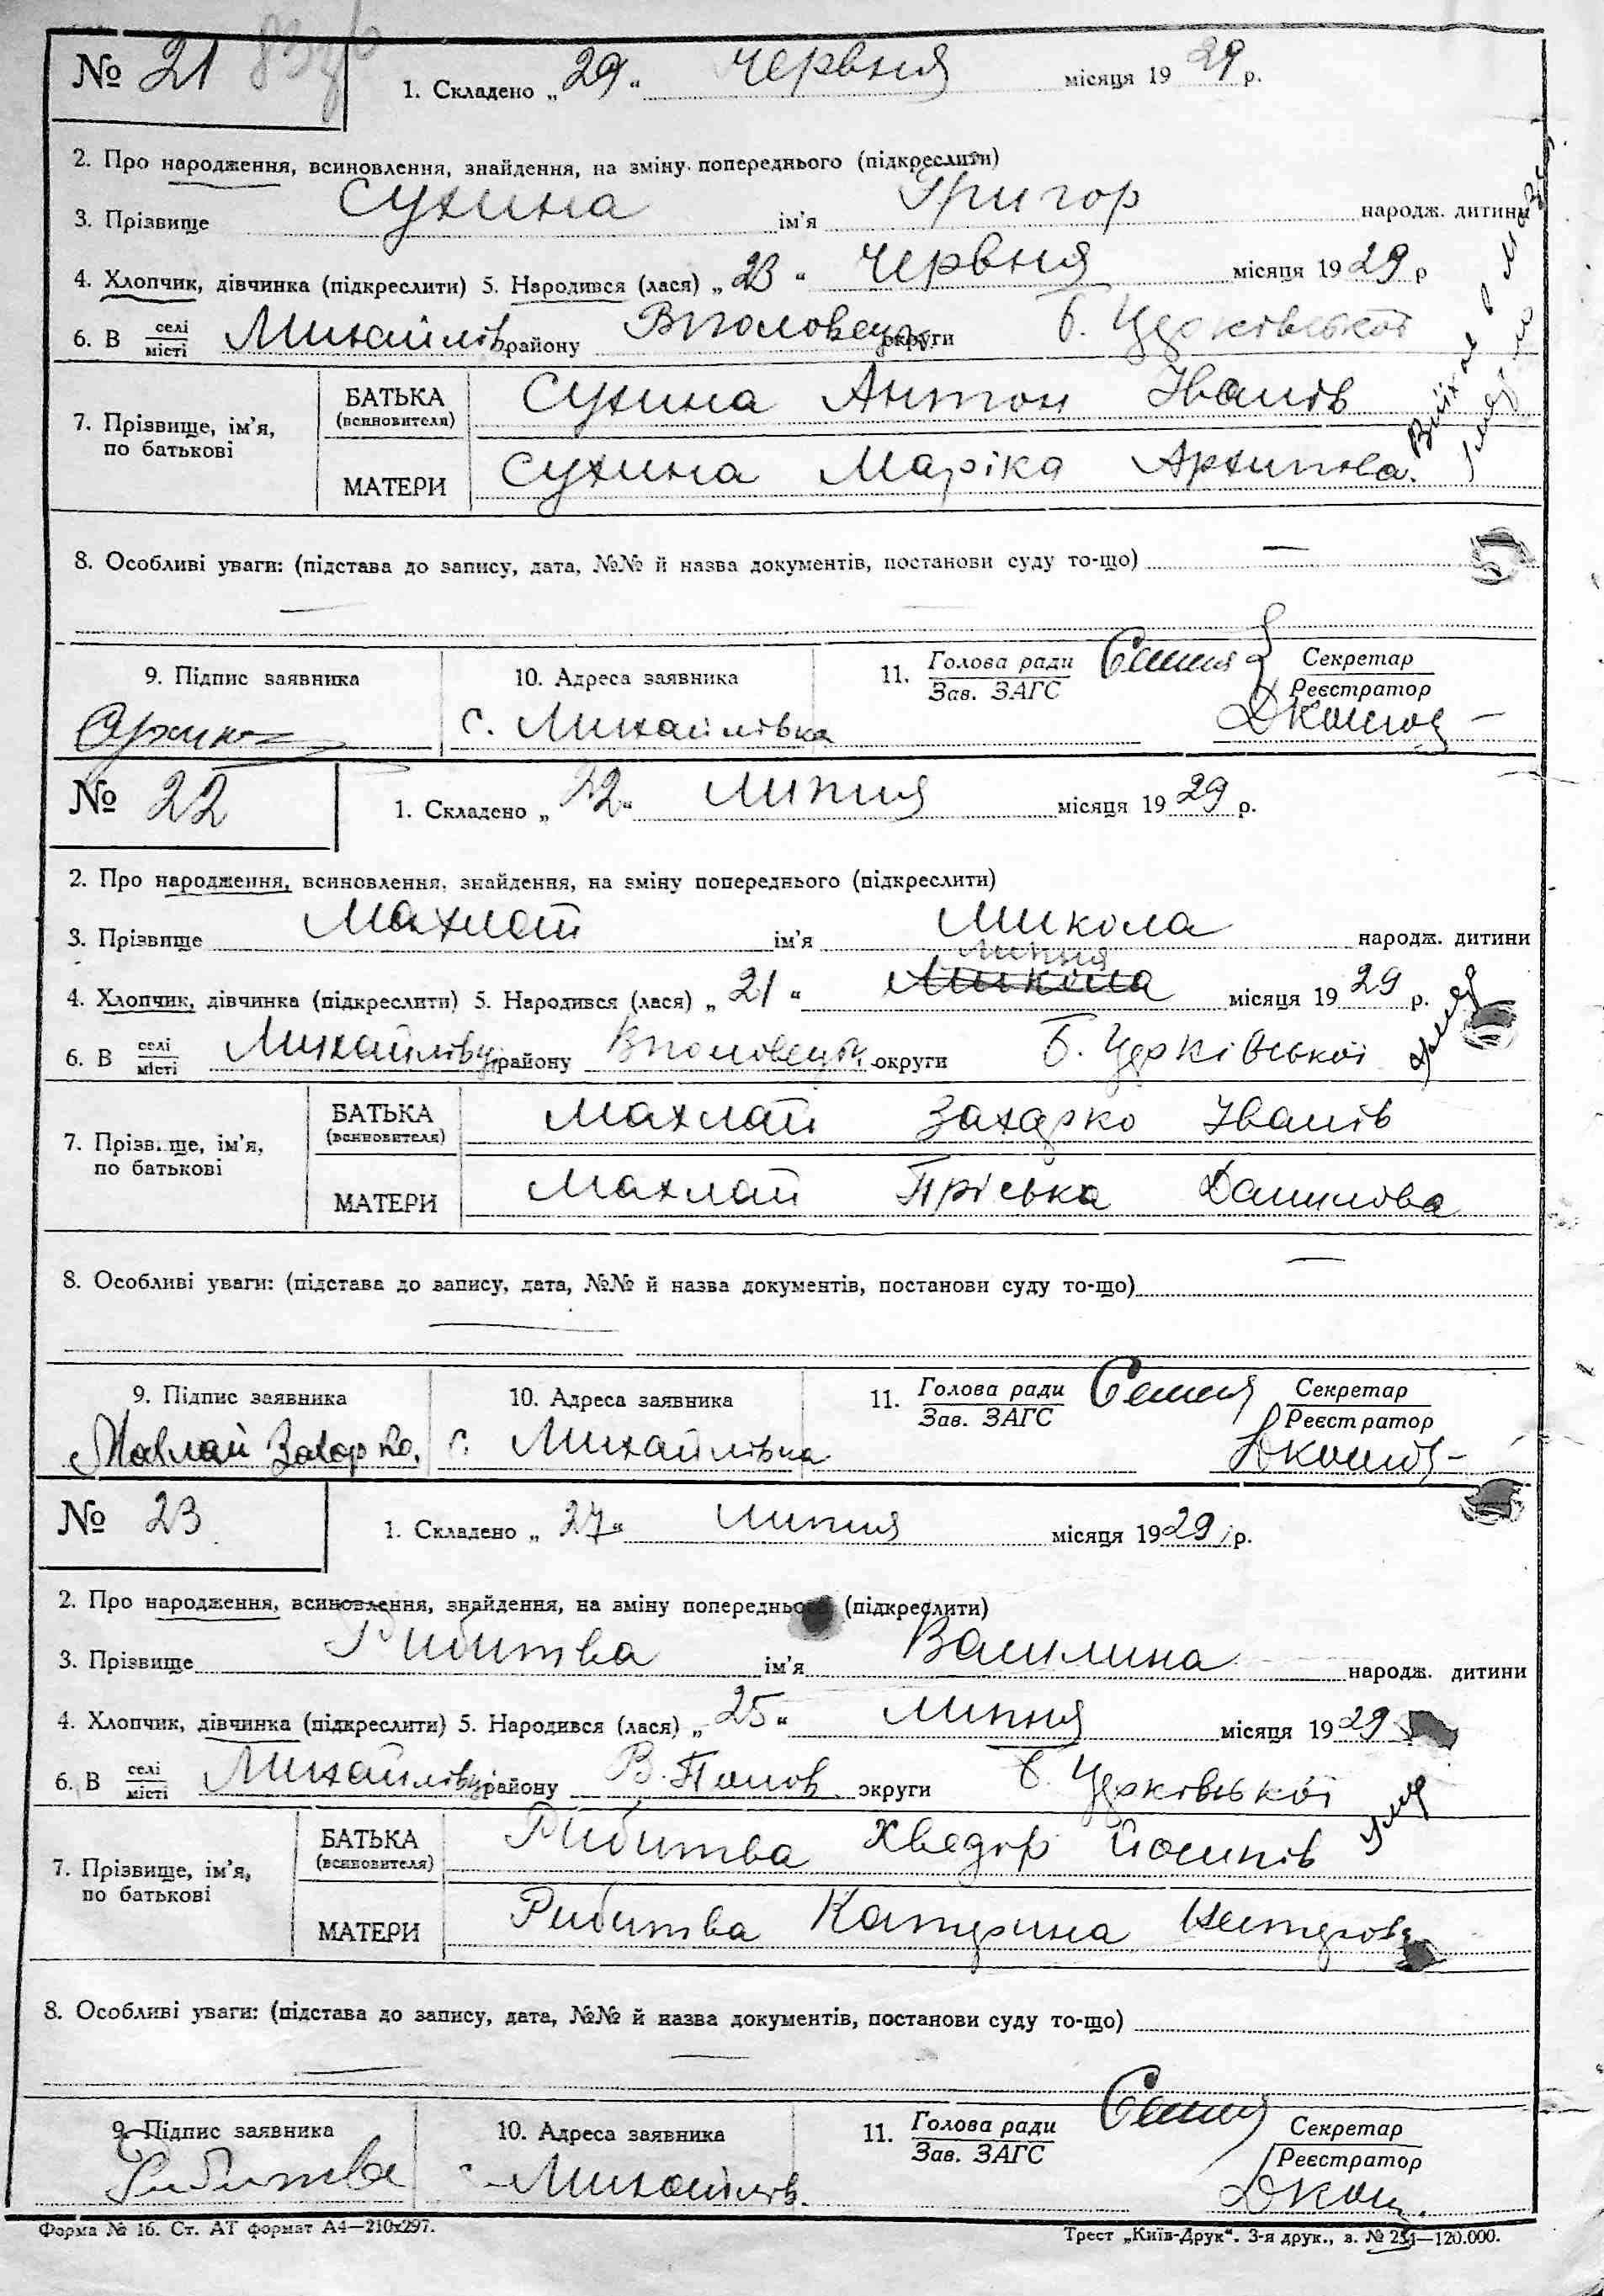 № 21
1. Складено „29“ червня місяця 1929 р.
2. Про народження, всиновлення, знайдення, на зміну попереднього (підкреслити)
3. Прізвище Сухина ім'я Григор народж. дитини
4. Хлопчик, дівчинка (підкреслити) 5. Народився (лася) „23“ червня місяця 1929 р
6. В селі/місті Михайлів. району Вполовецьк. округи Б. Церківської
7. Прізвище, ім'я, по батькові
БАТЬКА (всиновителя) Сухина Антон Іванів
МАТЕРИ Сухина Маріка Архипова.
8. Особливі уваги: (підстава до запису, дата, №№ й назва документів, постанови суду то-що) —
9. Підпис заявника
10. Адреса заявника
11. Голова ради/Зав. ЗАГС
Секретар/Реєстратор
с. Михайлівка
№ 22
1. Складено „22“ липня місяця 1929 р.
2. Про народження, всиновлення, знайдення, на зміну попереднього (підкреслити)
3. Прізвище Махлай ім'я Микола народж. дитини
липня
4. Хлопчик, дівчинка (підкреслити) 5. Народився (лася) „21“ Микола місяця 1929 р.
6. В селі/місті Михайлівці району Вполовецьк. округи Б. Церківської
7. Прізвище, ім'я, по батькові
БАТЬКА (всиновителя) Махлай Захарко Іванів
МАТЕРИ Махлай Пріська Данилова
8. Особливі уваги: (підстава до запису, дата, №№ й назва документів, постанови суду то-що) —
9. Підпис заявника
10. Адреса заявника
11. Голова ради/Зав. ЗАГС
Секретар/Реєстратор
Махлай Захарко. с. Михайлівка
№ 23
1. Складено „27“ липня місяця 1929 р.
2. Про народження, всиновлення, знайдення, на зміну попереднього (підкреслити)
3. Прізвище Рибитва ім'я Василина народж. дитини
4. Хлопчик, дівчинка (підкреслити) 5. Народився (лася) „25“ липня місяця 1929
6. В селі/місті Михайлівці району В. Полов. округи Б. Церківської
7. Прізвище, ім'я, по батькові
БАТЬКА (всиновителя) Рибитва Хведір Йосипів
МАТЕРИ Рибитва Катерина
8. Особливі уваги: (підстава до запису, дата, №№ й назва документів, постанови суду то-що)
9. Підпис заявника
10. Адреса заявника
11. Голова ради/Зав. ЗАГС
Секретар/Реєстратор
Рибитва с. Михайлів.
Форма № 16. Ст. АТ формат А4—210х297.
Трест „Київ-Друк“. 3-я друк., з. № 254—120.000.